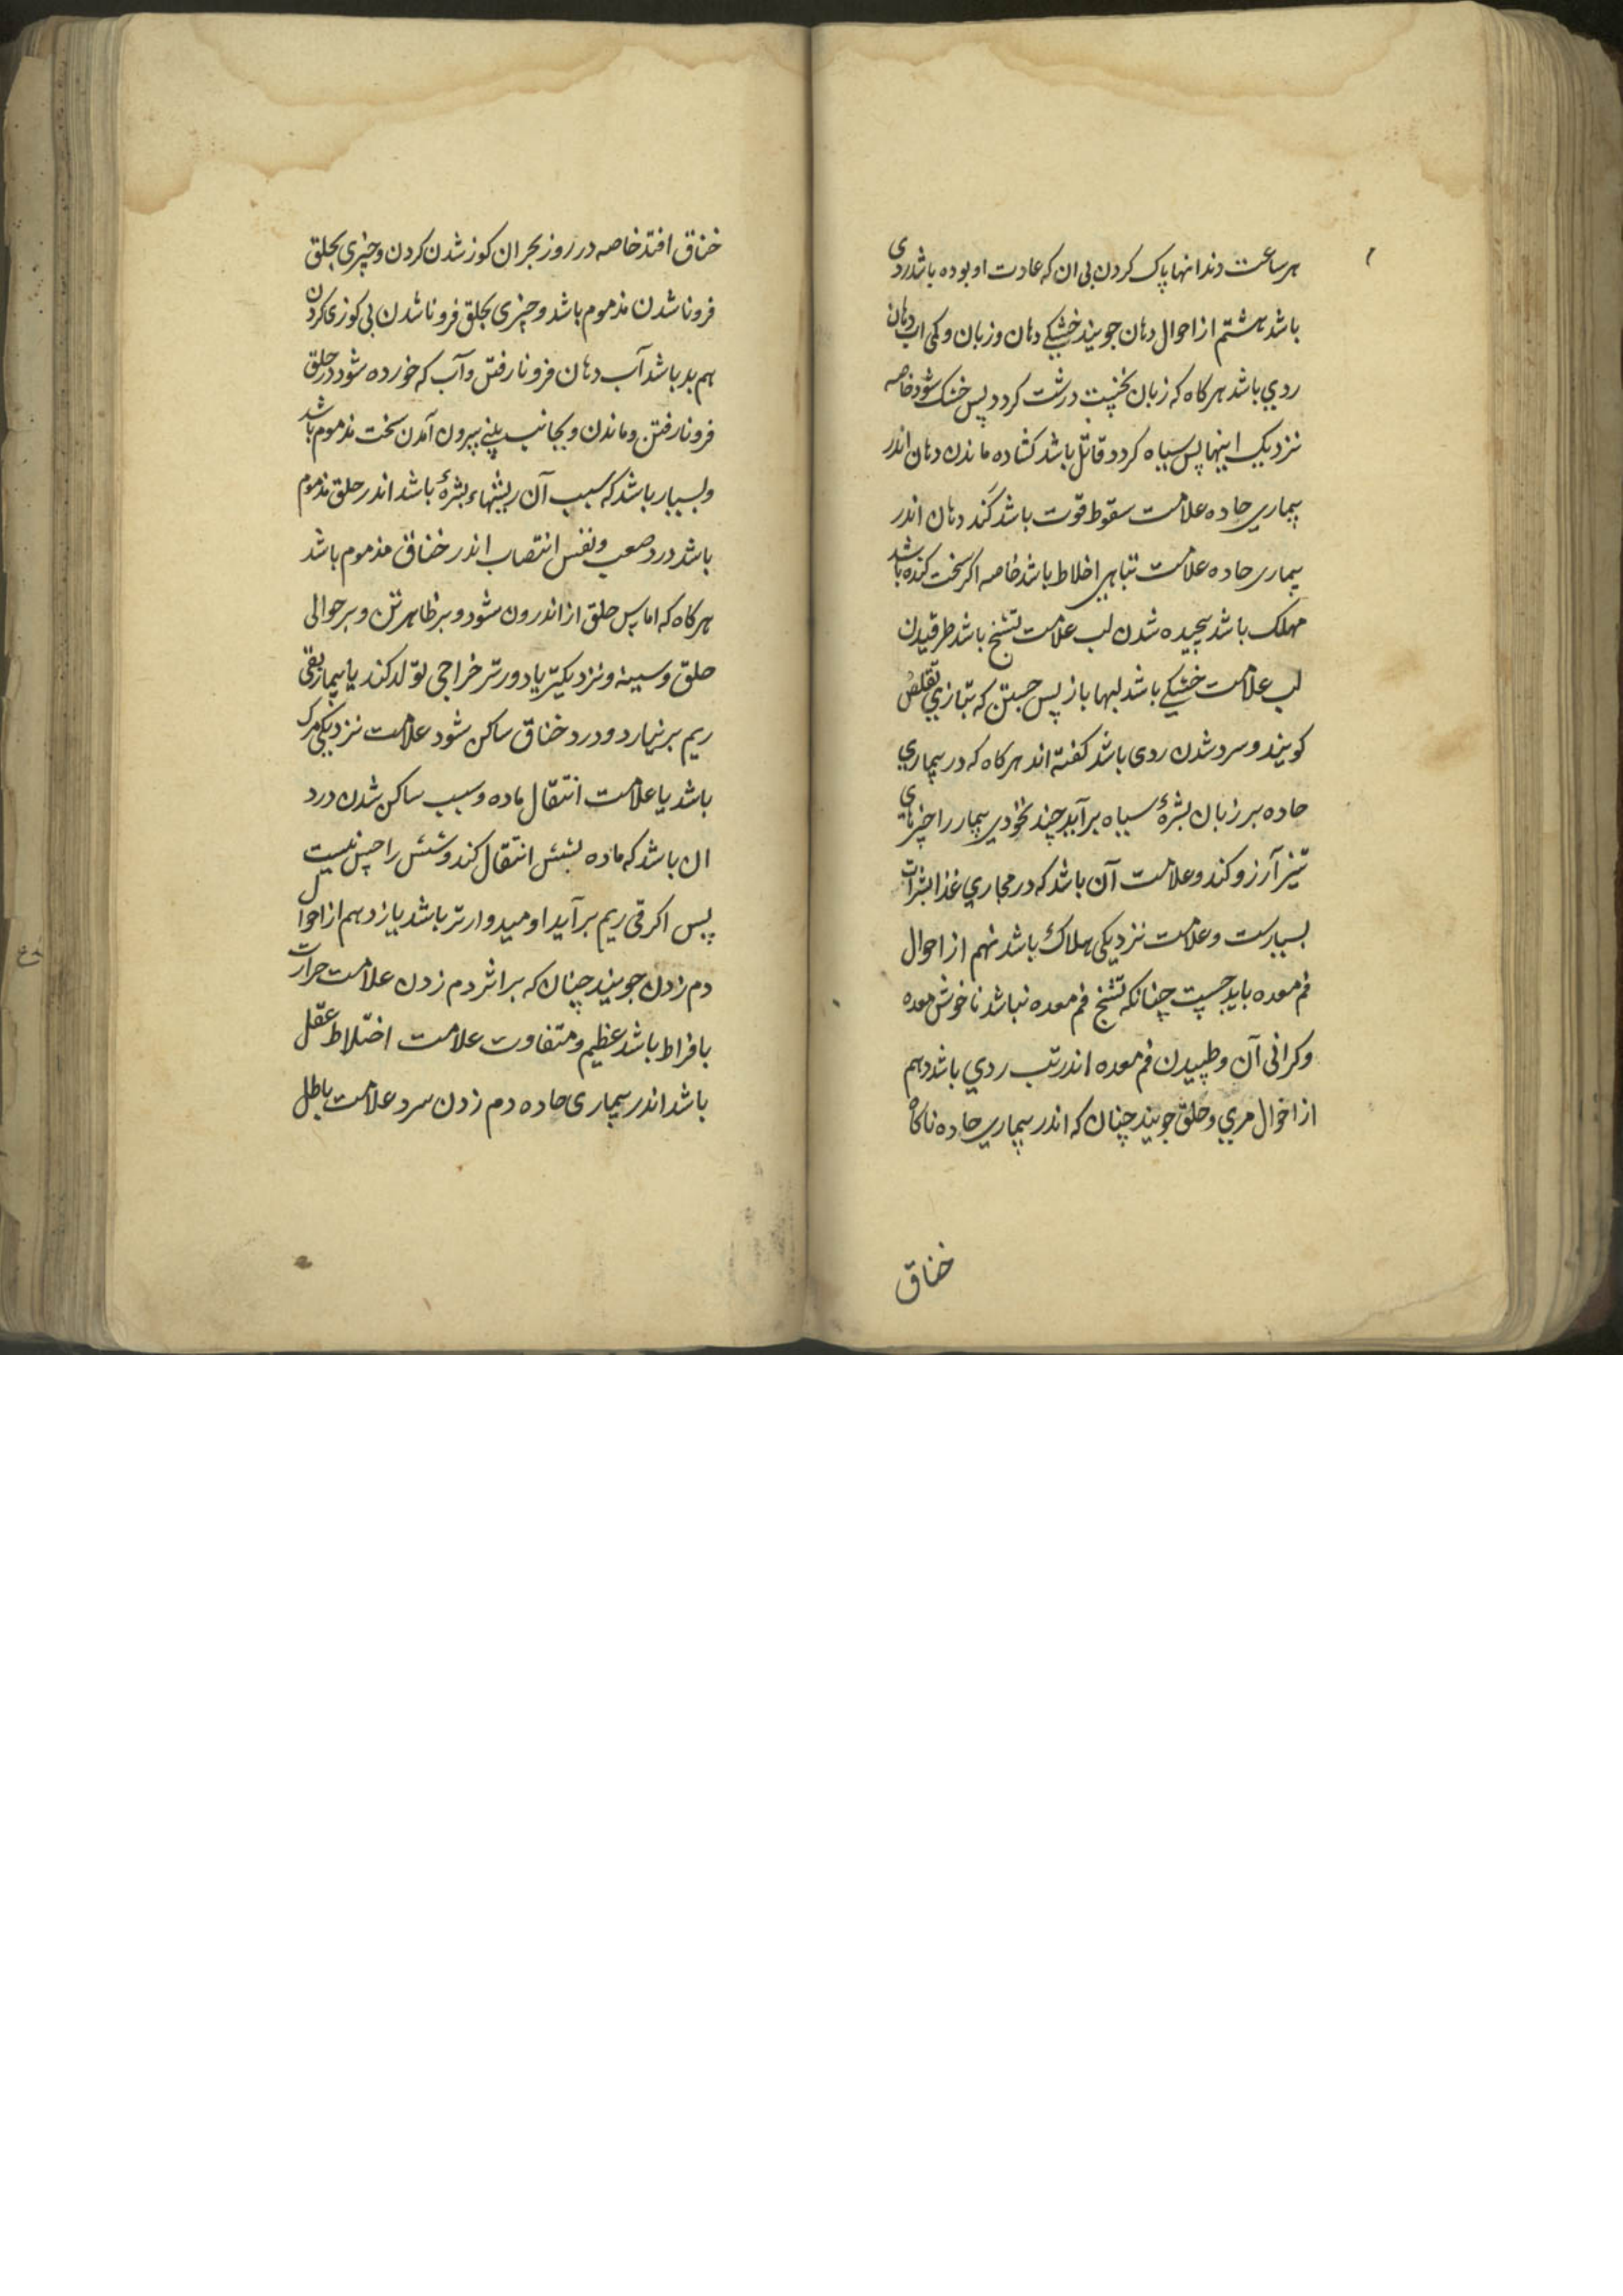 هر ساعت دندانها پاک کردن بی ان که عادت او بوده باشد ردی
باشد هشتم از احوال دهان جویند خشکی دهان و زبان و کمی اب دهان
ردی باشد هر کاه که زبان نخست درشت کردد پس خشک شود خاصه
نزدیک اینها پس سیاه کردد قاتل باشد کشاده ماندن دهان اندر
بیماری حاده علامت سقوط قوت باشد کند دهان اندر
بیماری حاده علامت تباهی اخلاط باشد خاصه اکر سخت کنده باشد
مهلک باشد پیچیده شدن لب علامت تشنج باشد طرقیدن
لب علامت خشکی باشد لبها باز پس جستن که بتازی تقلص
کویند و سرد شدن ردی باشد کفته اند هر کاه که در بیماری
حاده بر زبان بثرهٔ سیاه برآید چند نخودی بیمار را چیزهای
تیز آرزو کند و علامت آن باشد که در مجاری غذا بثرات
بسیارست و علامت نزدیکی هلاک باشد نهم از احوال
فم معده باید جست چنانکه تشنج فم معده نباشد ناخوش معده
و کرانی آن و طپیدن فم معده اندر تب ردی باشد دهم
از احوال مری و حلق جویند چنان که اندر بیماری حاده ناکاه
خناق
خناق افتد خاصه در روز بحران کوز شدن کردن و چیزی بحلق
فرو ناشدن مذموم باشد و چیزی بحلق فرو ناشدن بی کوزی کردن
هم بد باشد آب دهان فرو نارفتن و آب که خورده شود در حلق
فرو نارفتن و ماندن و بجانب بینی بیرون آمدن سخت مذموم باشد
و بسیار باشد که سبب آن ریشهاء بثرهٔ باشد اندر حلق مذموم
باشد درد صعب و نفس انتصاب اندر خناق مذموم باشد
هر کاه که اماس حلق از اندرون شود و بر ظاهر تن و بر حوالی
حلق و سینه و نزدیکتر یا دورتر خراجی تولد کند یا بیمار بقی
ریم بر نیارد و درد خناق ساکن شود علامت نزدیکی مرک
باشد یا علامت انتقال ماده و سبب ساکن شدن درد
ان باشد که ماده بشش انتقال کند و شش را حس نیست
پس اکر قی ریم برآید اومیدوارتر باشد یازدهم از احوال
دم زدن جویند چنان که براثر دم زدن علامت حرارت
بافراط باشد عظیم و متفاوت علامت اختلاط عقل
باشد اندر بیماری حاده دم زدن سرد علامت باطل